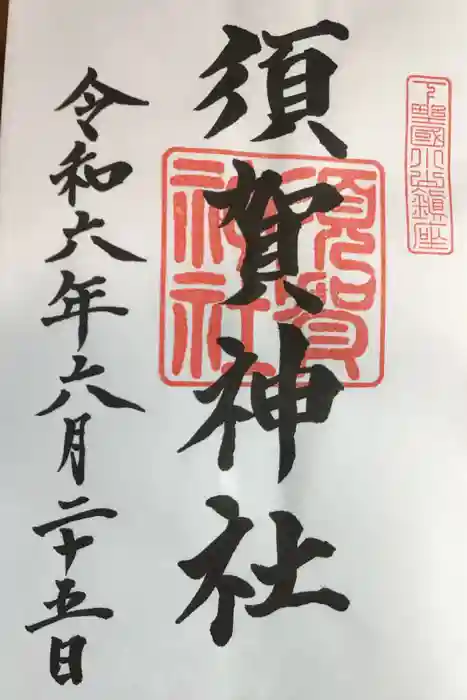 下野國小山鎮座
須賀神社
須賀神社
令和六年六月二十五日